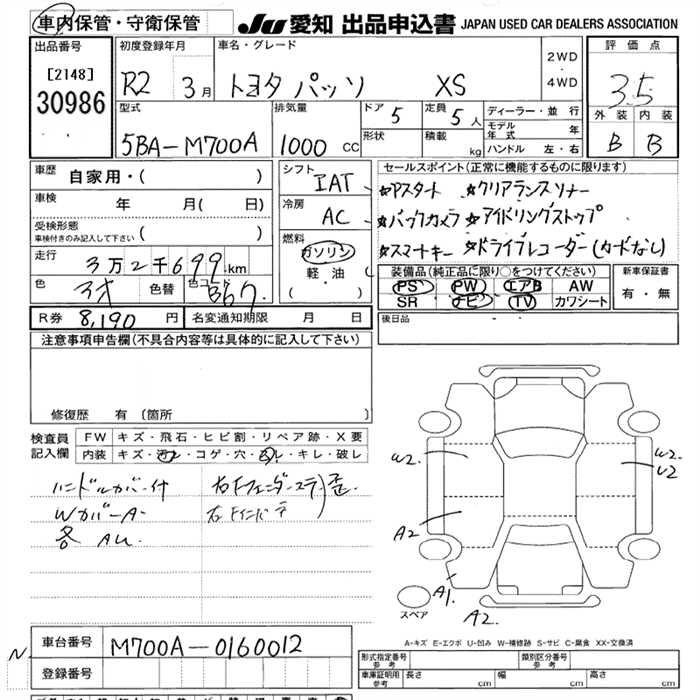 車内保管・守衛保管
JU 愛知 出品申込書 JAPAN USED CAR DEALERS ASSOCIATION
出品番号 初度登録年月 車名・グレード 2WD・4WD 評価点
[2148] 30986
R2 3月 トヨタ パッソ XS 3.5
型式 排気量 ドア 5 定員 5人 ディーラー・並行 外装 内装
5BA-M700A 1000 CC 形状 積載 kg モデル年式 年 ハンドル 左・右 B B
車歴 自家用・( )
車検 年 月( 日)
受検形態 車検付きのみ記入して下さい ( )
走行 3万2千699km
色 色替 色コード
シフト IAT
冷房 AC
燃料 ガソリン 軽油 ( ・ )
セールスポイント(正常に機能するものに限ります)
☆Pスタート ☆クリアランスソナー
☆バックカメラ ☆アイドリングストップ
☆スマートキー ☆ドライブレコーダー(カードなし)
装備品(純正品に限り○をつけてください) 新車保証書
PS PW エアB AW 有・無
SR ナビ TV カワシート
R券 8,190 円 名変通知期限 月 日
後日品
注意事項申告欄(不具合内容等は具体的に記入して下さい)
修復歴 有(箇所
検査員記入欄 FW キズ・飛石・ヒビ割・リペア跡・X要
内装 キズ・汚レ・コゲ・穴・スレ・キレ・破レ
ハンドルカバー付
WカバーA
各 AU
右Fフェンダーステ
右Fインパ テ 歪
W2 W2 U2
A2
A1
A2
スペア
A-キズ E-エクボ U-凹み W-補修跡 S-サビ C-腐食 XX-交換済
N
車台番号 M700A-0160012
登録番号
形式指定番号 参考 類別区分番号 参考
車庫証明用 参考 長さ cm 幅 cm 高さ cm